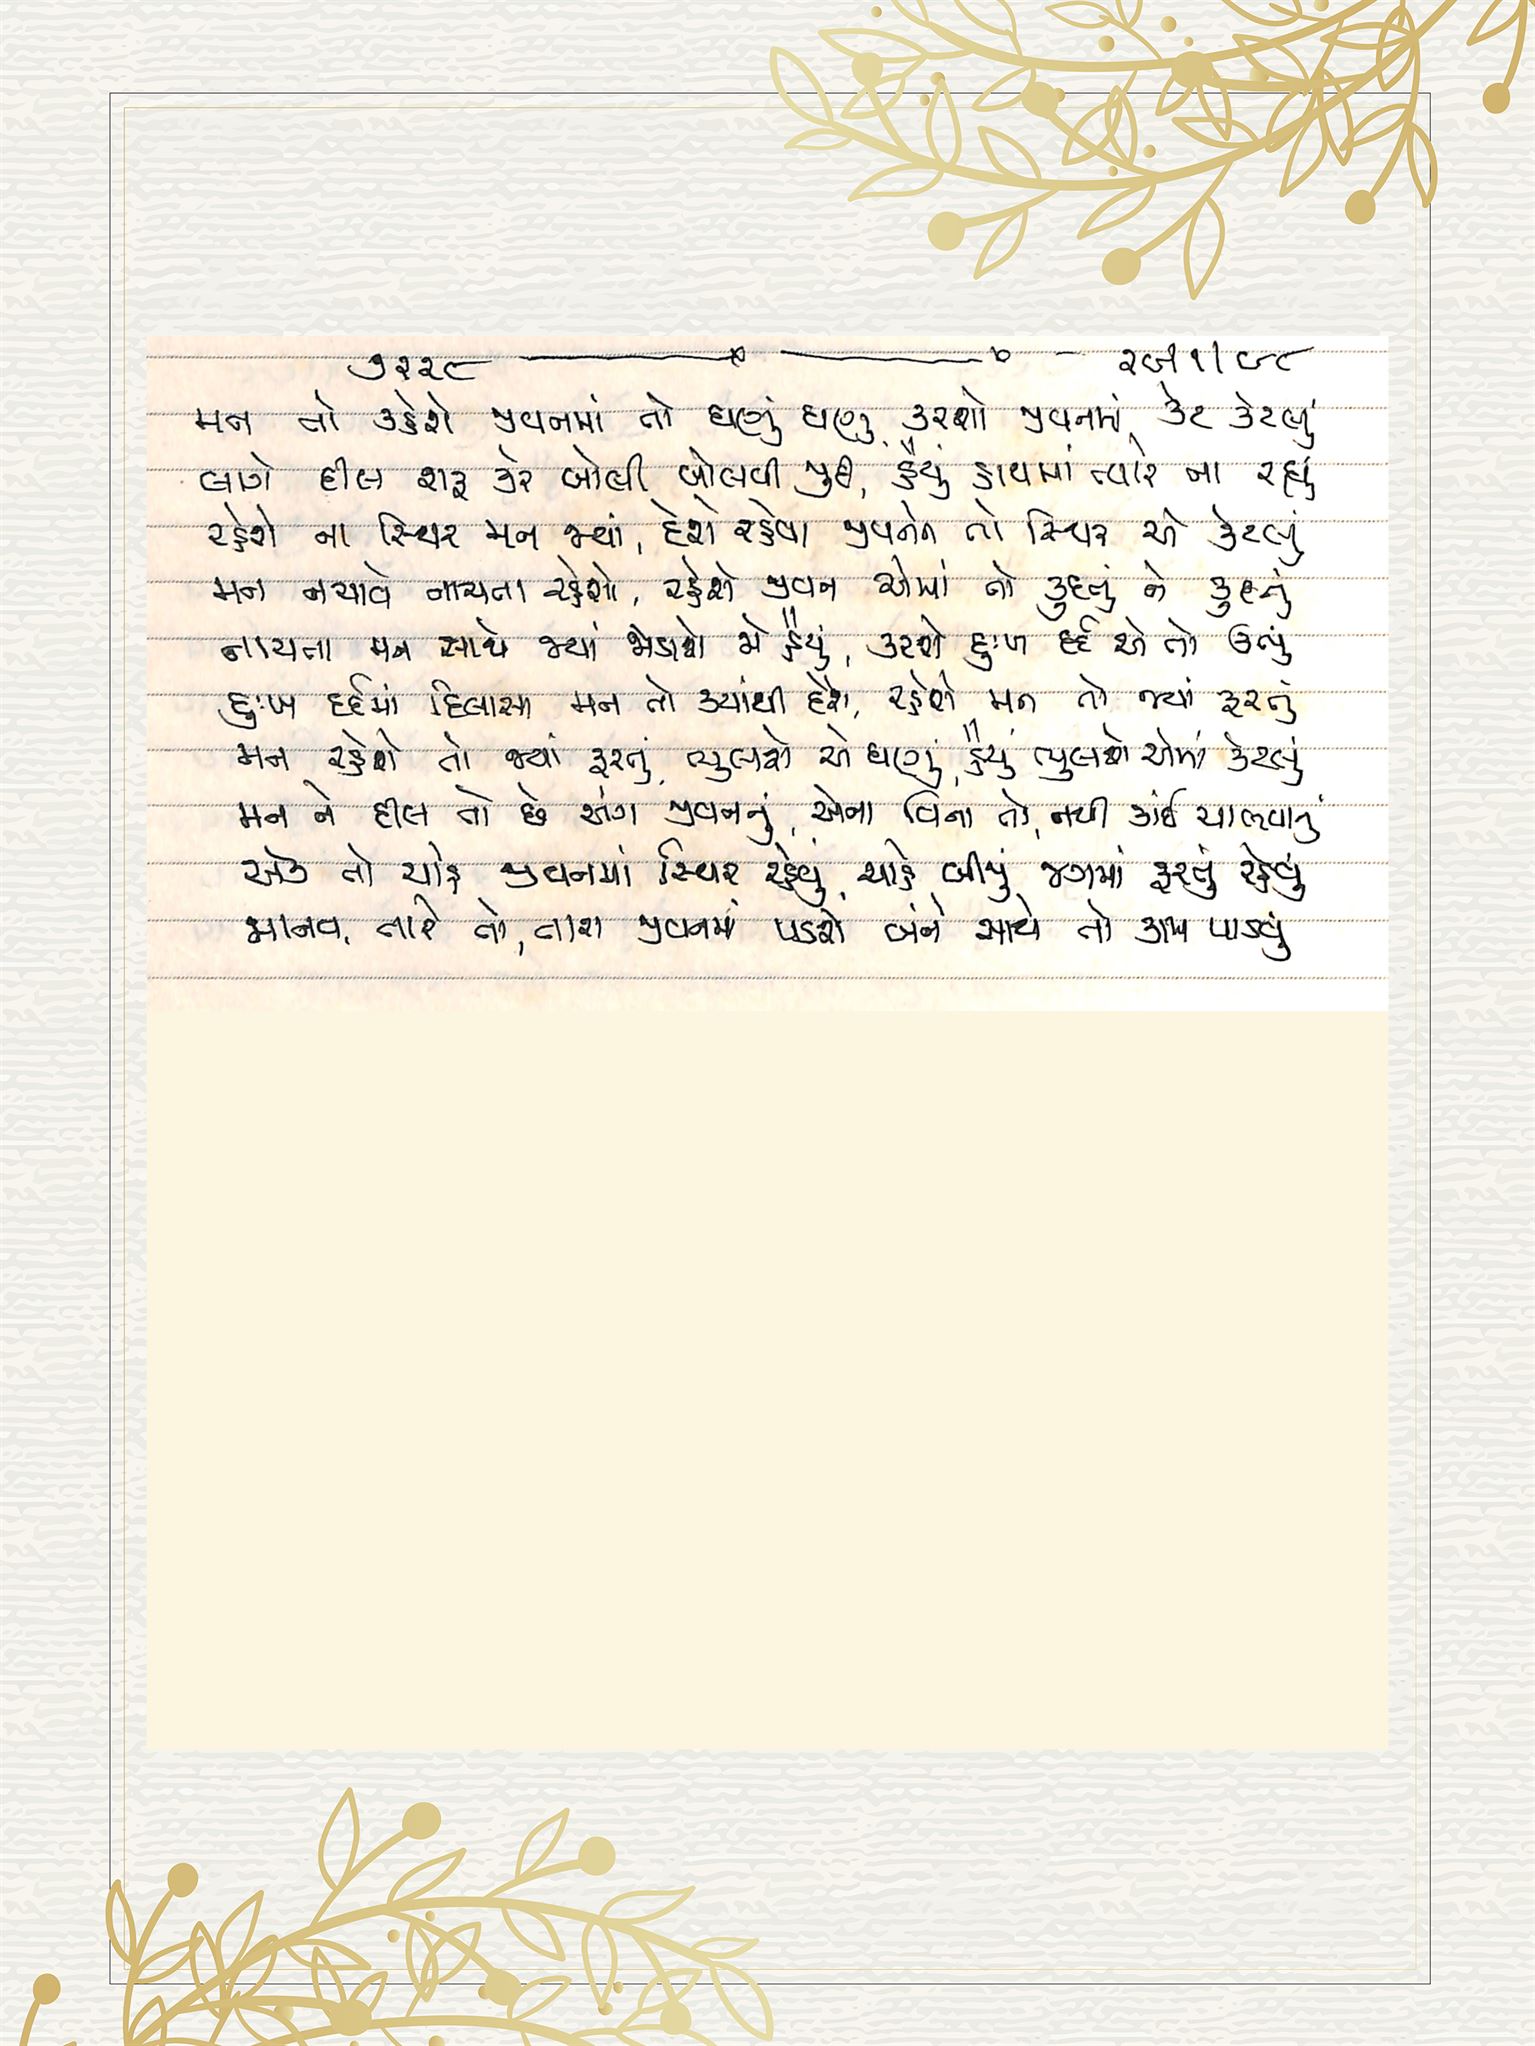 ૭૨૨૮ ૨૯।૧।૯૮
મન તો કહેશે જીવનમાં તો ઘણું ઘણુ, કરશો જીવનમાં કેટ કેટલું
લાગે દીલ શરૂ કરે બોલી બોલવી જુદી, હૈયું હાથમાં ત્યારે ના રહ્યું
રહેશે ના સ્થિર મન જ્યાં, દેશે રહેવા જીવનને તો સ્થિર એ કેટલું
મન નચાવે નાચતા રહેશો, રહેશે જીવન એમાં તો કુદતું ને કુદતું
નાચતા મન સાથે જ્યાં જોડાશે જો હૈયું, કરશે દુઃખ દર્દ એ તો ઉભું
દુઃખ દર્દમાં દિલાસા મન તો ક્યાંથી દેશે, રહેશે મન તો જ્યાં ફરતું
મન રહેશે તો જ્યાં ફરતું, ભુલશે એ ઘણું, હૈયું ભુલશે એમાં કેટલું
મન ને દીલ તો છે અંગ જીવનનું, એના વિના તો, નથી કાંઈ ચાલવાનું
એક તો ચાહે જીવનમાં સ્થિર રહેવું, ચાહે બીજું જગમાં ફરતું રહેવું
માનવ, તારે તો, તારા જીવનમાં પડશે બંને સાથે તો કામ પાડવું